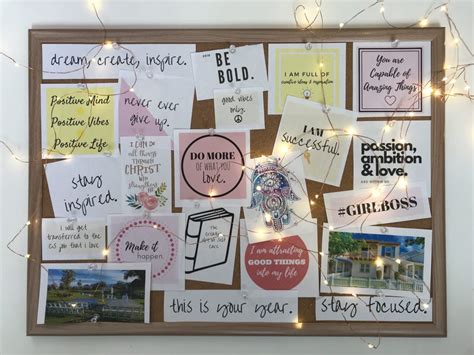 dream, create, inspire.
BE
BOLD.
I AM FULL OF
creative ideas & inspiration
You are
Capable of
Amazing Things
Positive Mind
Positive Vibes
Positive Life
never ever
give up.
good vibes
only.
I AM
successful.
passion,
ambition
& love.
I CAN DO
all things
THROUGH
CHRIST
who
strengthens
me
DO MORE
OF WHAT YOU
love.
stay
inspired.
#GIRLBOSS
I will get
transferred to the
job that I love
Make it
happen.
I AM ATTRACTING
GOOD THINGS
INTO MY LIFE
this is your year.
stay focused.